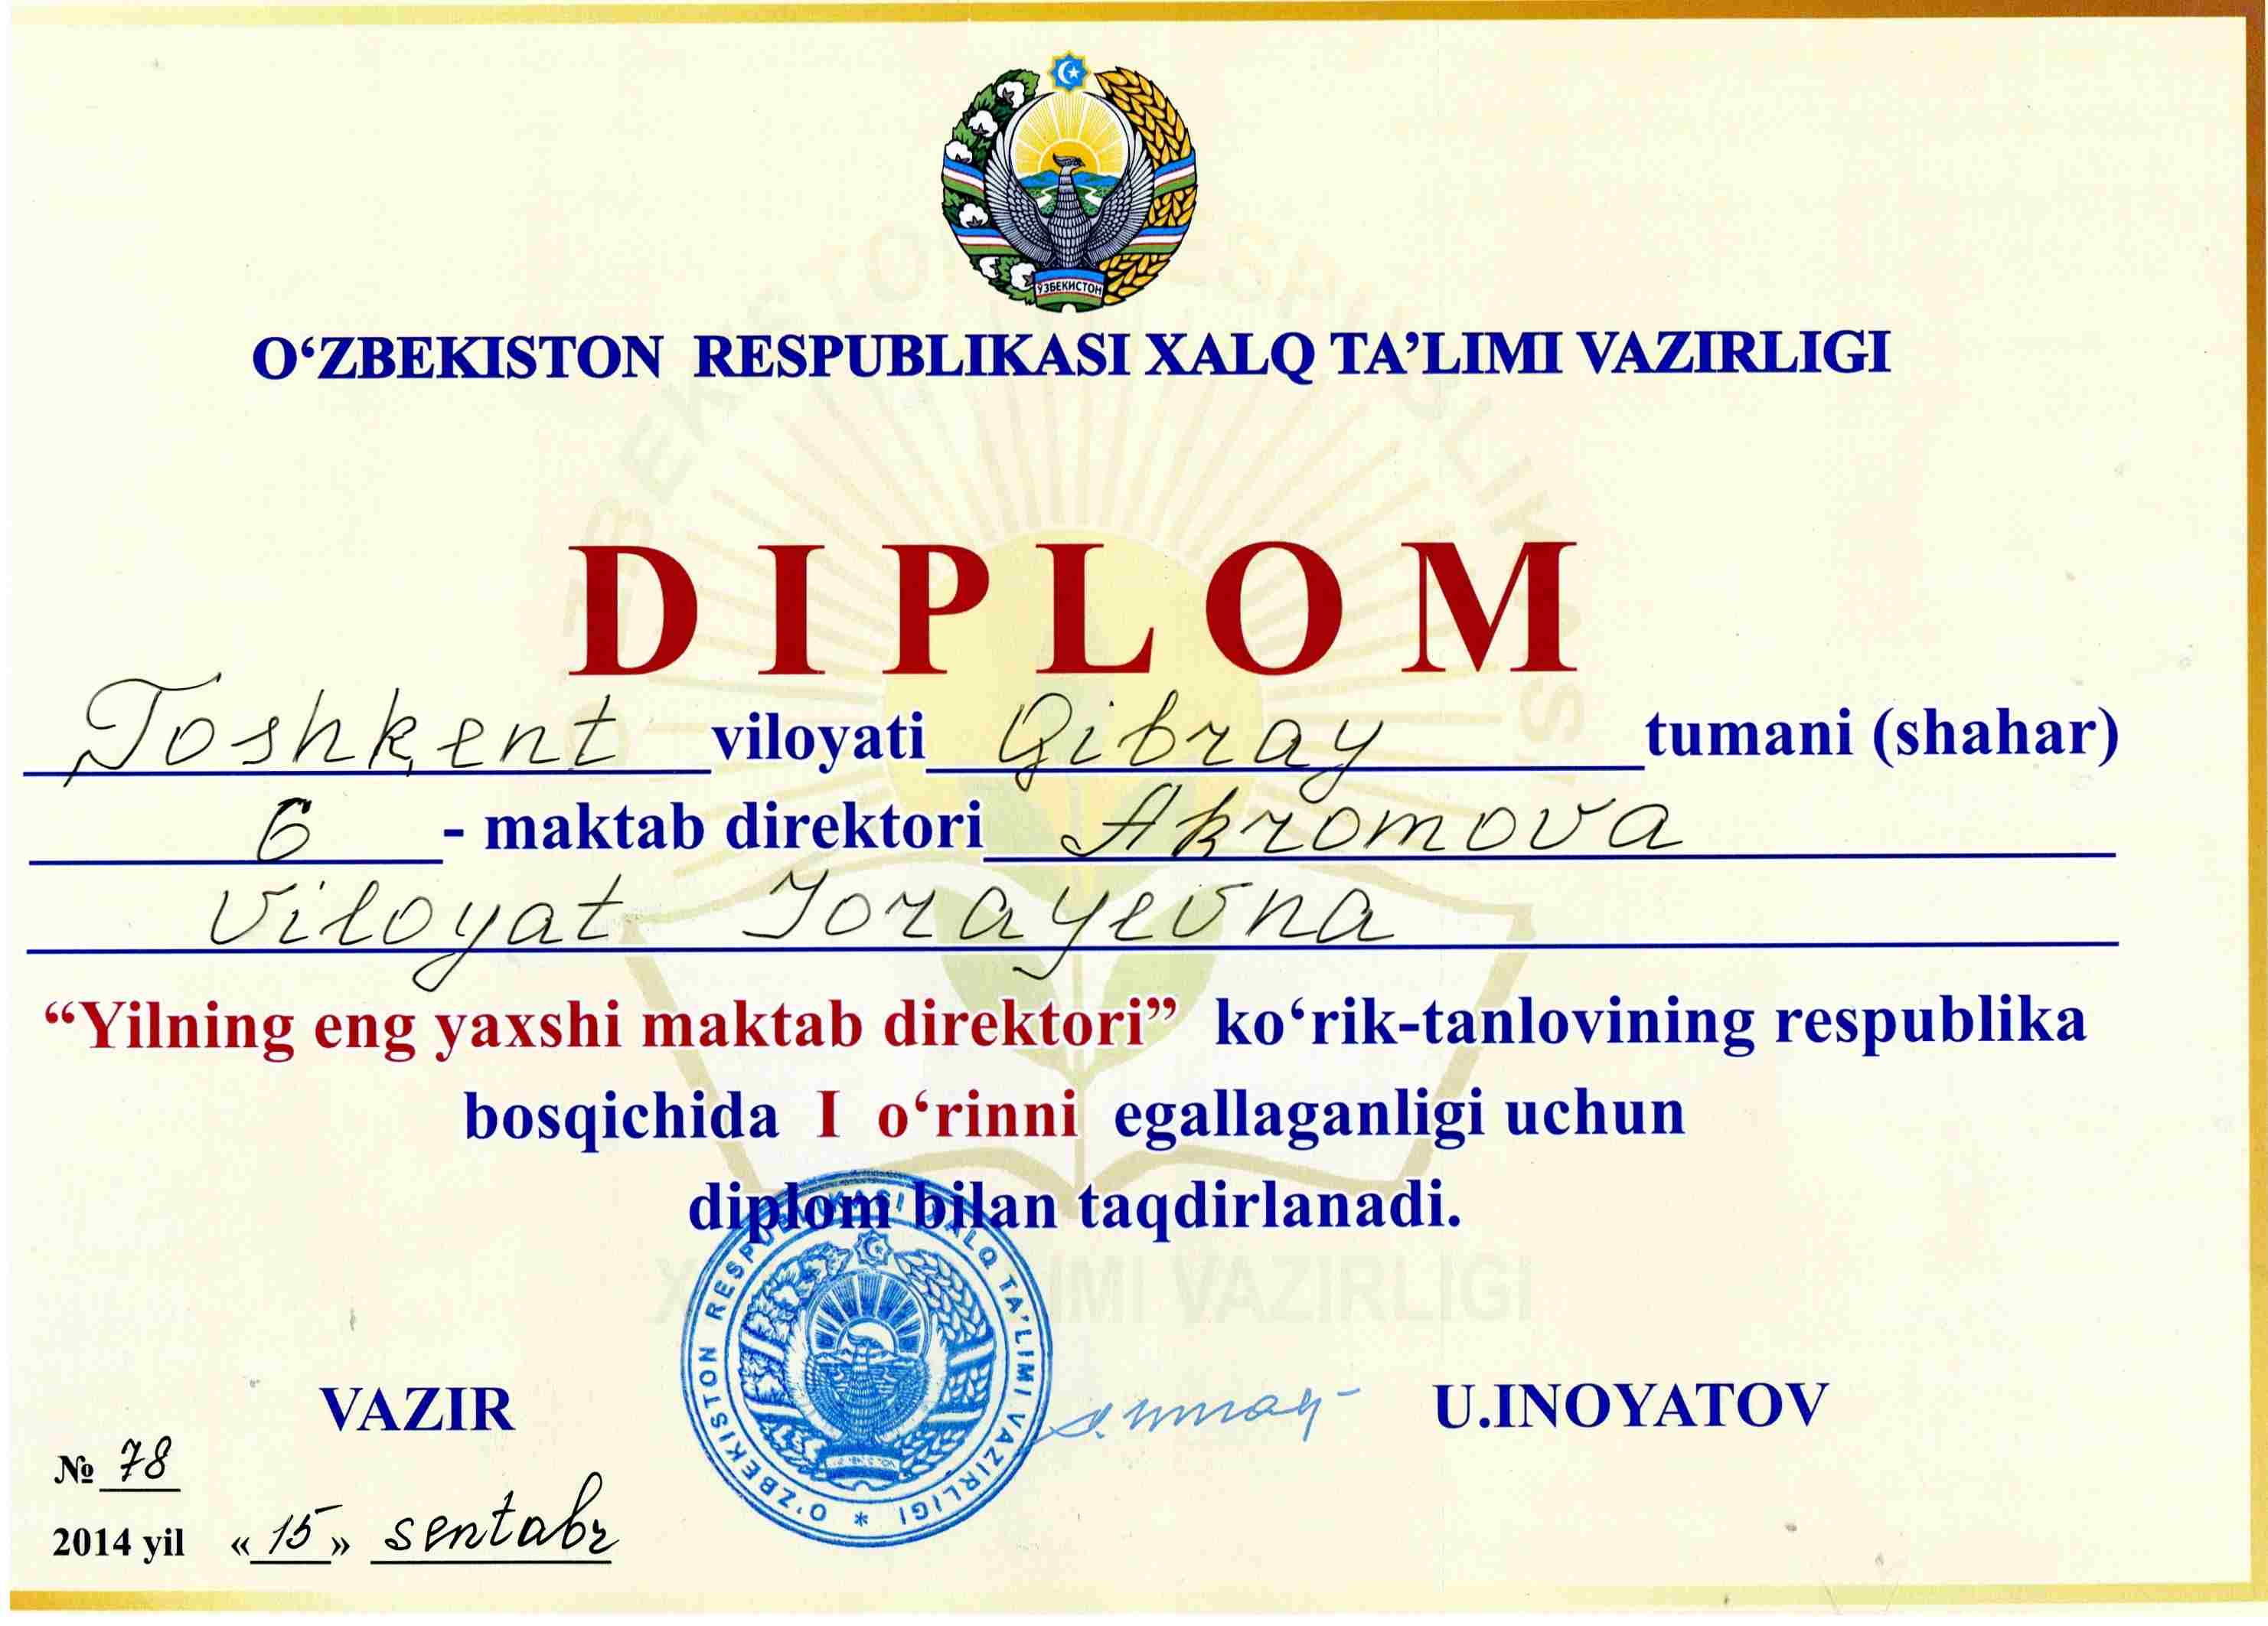 ЎЗБЕКИСТОН
O‘ZBEKISTON RESPUBLIKASI XALQ TA’LIMI VAZIRLIGI
DIPLOM
Toshkent viloyati Qibray tumani (shahar)
6 - maktab direktori Akromova
Viloyat Jorayevna
“Yilning eng yaxshi maktab direktori” ko‘rik-tanlovining respublika
bosqichida I o‘rinni egallaganligi uchun
diplom bilan taqdirlanadi.
O‘ZBEKISTON RESPUBLIKASI XALQ TA’LIMI VAZIRLIGI *
VAZIR U.INOYATOV
№ 78
2014 yil « 15 » sentabr